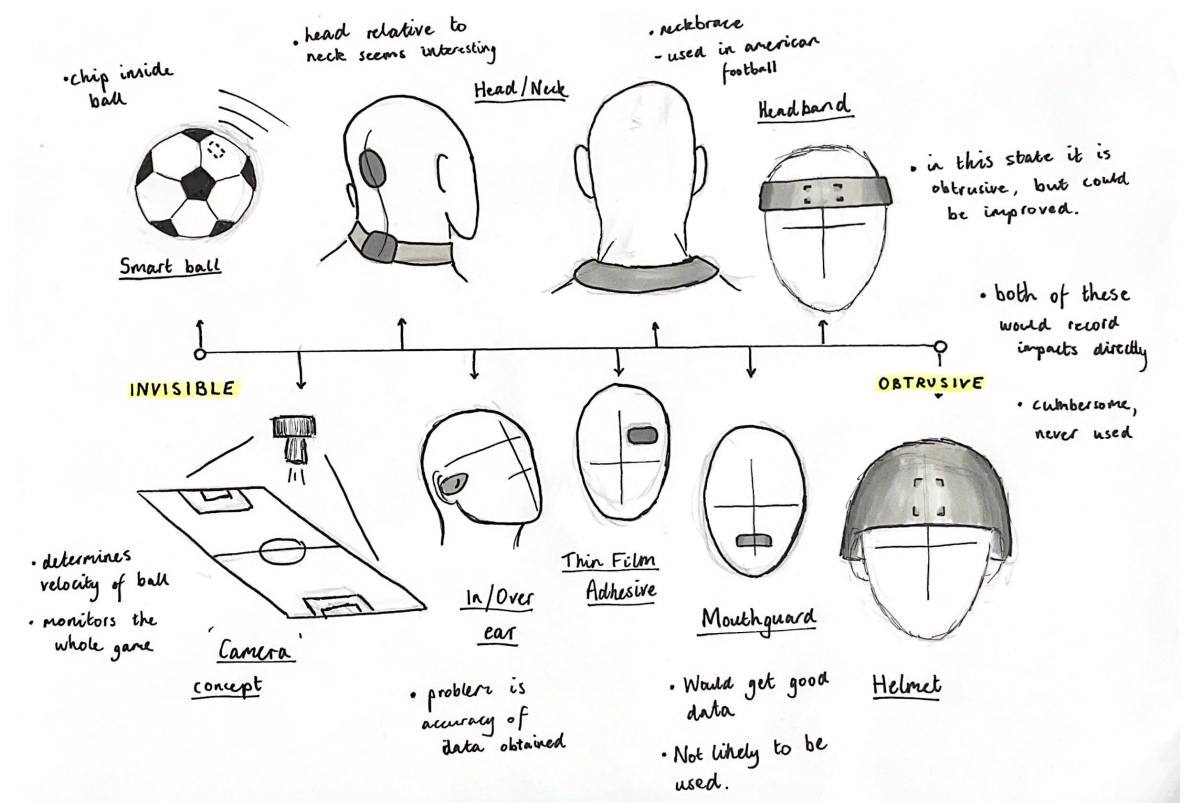 • chip inside
ball
Smart ball
• head relative to
neck seems interesting
Head/Neck
• neckbrace
- used in american
football
Headband
• in this state it is
obtrusive, but could
be improved.
• both of these
would record
impacts directly
• cumbersome,
never used
INVISIBLE
OBTRUSIVE
• determines
velocity of ball
• monitors the
whole game
'Camera'
concept
In/Over
ear
• problem is
accuracy of
data obtained
Thin Film
Adhesive
Mouthguard
• Would get good
data
• Not likely to be
used.
Helmet